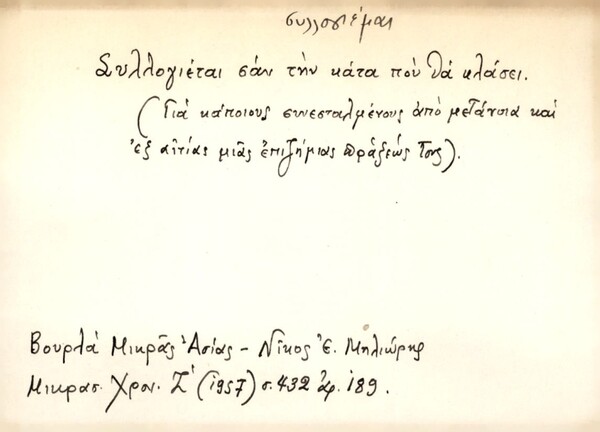 συλλογιέμαι
Συλλογιέται σάν τήν κάτα πού θά κλάσει.
(Γιά κάποιους συνεσταλμένους ἀπό μετάνοια καί
ἐξ αἰτίας μιᾶς ἐπιζήμιας πράξεώς τους).
Βουρλά Μικρᾶς Ἀσίας - Νῖκος Ἐ. Μηλιώρης
Μικρασ. Χρον. Ζ' (1957) σ. 432 ἀρ. 189.